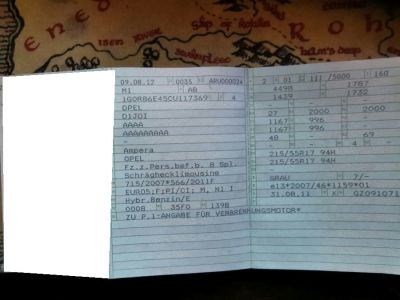 Isen River
Helm's Deep
09.08.12 0035 ARU000024
M1 AB
1G0RB6E45CU117369 4
OPEL
D1JOI
AAAA
AAAAAAAAA
-
Ampera
OPEL
Fz.z.Pers.bef.b. 8 Spl.
Schräghecklimousine
715/2007*566/2011F
EURO5;F;PI/CI; M, N1 I
Hybr.Benzin/E
0008 35F0 1398
ZU P.1:ANGABE FÜR VERBRENNUNGSMOTOR*
2 01 111 /5000 160
4498 1787
1439 1732
- -
27 2000 2000
1167 996
1167 996
48 - 69
- - 4 -
215/55R17 94H
215/55R17 94H
-
GRAU 7/-
e13*2007/46*1159*01
31.08.11 K GZ091071